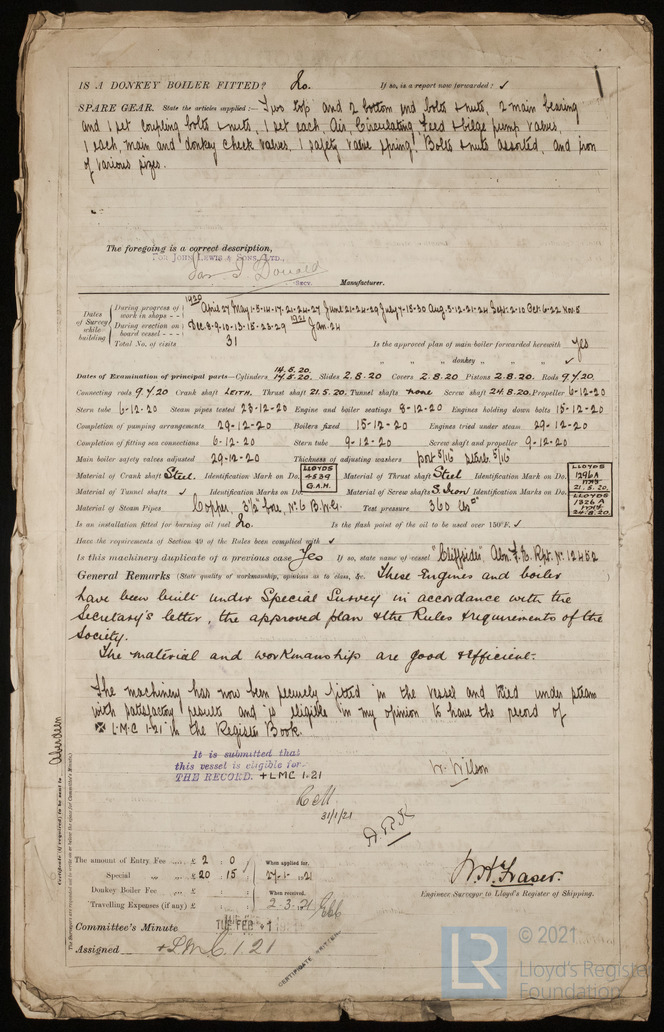 IS A DONKEY BOILER FITTED? No. If so, is a report now forwarded? ✓
SPARE GEAR. State the articles supplied:— Two top and 2 bottom end bolts & nuts, 2 main bearing
and 1 set coupling bolts & nuts, 1 set each, Air, Circulating, Feed & bilge pump valves,
1 each, main and donkey check valves, 1 safety valve spring! Bolts & nuts assorted, and iron
of various sizes.
The foregoing is a correct description,
FOR JOHN LEWIS & SONS, LTD.,
Jas. J. Donald
Secy. Manufacturer.
Dates of Survey while building
During progress of work in shops - - 1920 April 27 May 1-5-14-17-21-24-27 June 21-24-29 July 7-15-30 Aug 3-12-21-24 Sept. 2-10 Oct. 6-22 Nov 5
During erection on board vessel - - - Dec 8-9-10-13-15-23-29 1921 Jan. 24
Total No. of visits 31 Is the approved plan of main boiler forwarded herewith Yes
" " " donkey " " " ✓
Dates of Examination of principal parts—Cylinders 14.5.20. 17.5.20. Slides 2.8.20 Covers 2.8.20 Pistons 2.8.20. Rods 9.7.20.
Connecting rods 9.7.20 Crank shaft LEITH. Thrust shaft 21.5.20. Tunnel shafts none Screw shaft 24.8.20. Propeller 6-12-20
Stern tube 6-12-20 Steam pipes tested 23-12-20 Engine and boiler seatings 8-12-20 Engines holding down bolts 15-12-20
Completion of pumping arrangements 29-12-20 Boilers fixed 15-12-20 Engines tried under steam 29-12-20
Completion of fitting sea connections 6-12-20 Stern tube 9-12-20 Screw shaft and propeller 9-12-20
Main boiler safety valves adjusted 29-12-20 Thickness of adjusting washers port 5/16" starb. 5/16"
Material of Crank shaft Steel. Identification Mark on Do. LLOYDS 4539 G.A.H. Material of Thrust shaft Steel Identification Mark on Do. LLOYDS 1296A 21.5.20.
Material of Tunnel shafts ✓ Identification Marks on Do. Material of Screw shafts S. Iron Identification Marks on Do. LLOYDS 1326 A 24.8.20.
Material of Steam Pipes Copper, 3½" bore, No. 6 B.W.G. Test pressure 360 lbs □"
Is an installation fitted for burning oil fuel No. Is the flash point of the oil to be used over 150°F. ✓
Have the requirements of Section 49 of the Rules been complied with ✓
Is this machinery duplicate of a previous case Yes If so, state name of vessel "Cliffside" Abn. F.E. Rpt. No. 12452
General Remarks (State quality of workmanship, opinions as to class, &c. These Engines and boiler
have been built under Special Survey in accordance with the
Secretary's letter, the approved plan & the Rules & requirements of the
Society.
The material and workmanship are good & efficient.
The machinery has now been securely fitted in the vessel and tried under steam
with satisfactory results and is eligible in my opinion to have the record of
✠ L.M.C 1-21 in the Register Book.
It is submitted that
this vessel is eligible for
THE RECORD. + LMC 1-21
W. Wilson
31/1/21
Aberdeen
Certificate (if required) to be sent to
The amount of Entry Fee ... £ 2 : 0 : When applied for,
Special ... £ 20 : 15 : 27-1-1921
Donkey Boiler Fee ... £ : : When received,
Travelling Expenses (if any) £ : : 2-3-21
W.H. Fraser.
Engineer Surveyor to Lloyd's Register of Shipping.
Committee's Minute TUE. FEB. 1
Assigned + LMC. 1.21
CERTIFICATE WRITTEN
LR
© 2021
Lloyd's Register
Foundation